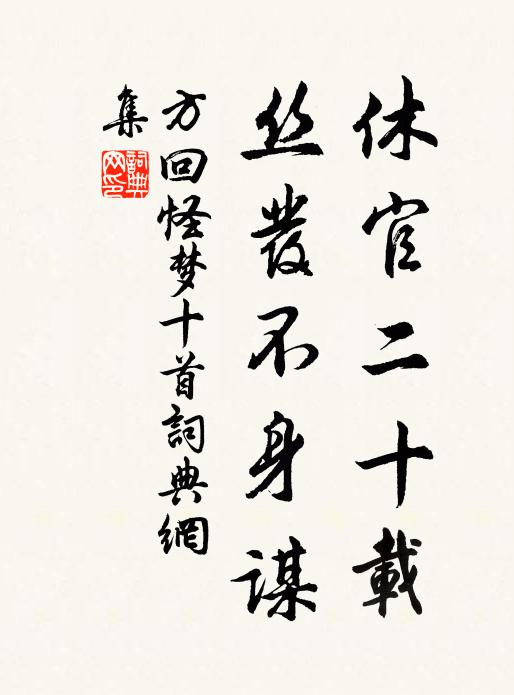 休官二十載
丝發不身謀
方回怪梦十首詞典網
集
詞典
网印